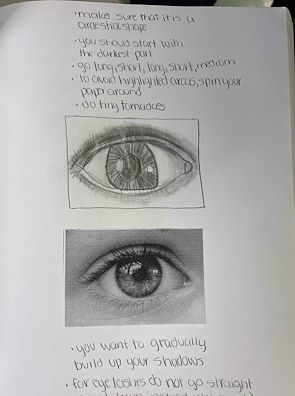 • make sure that it is a
circle stick shape
• you should start with
the darkest part
• go long, short, long, short, medium
• to avoid highlighted areas, spin your
paper around
• do tiny tornadoes
• you want to gradually
build up your shadows
• for eye lashes do not go straight